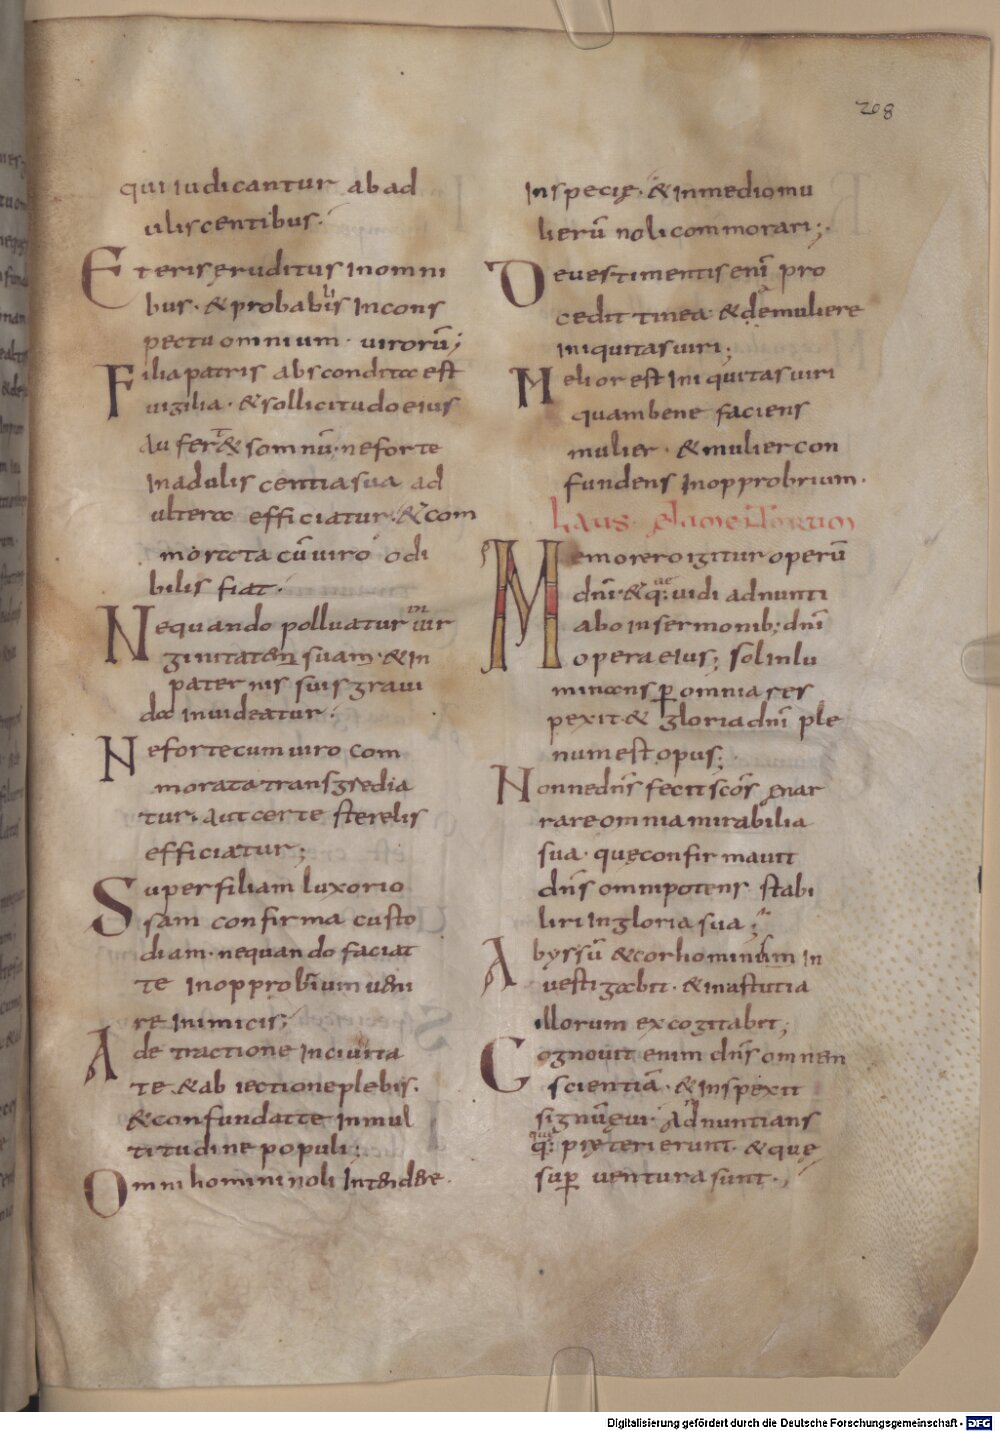 208
qui iudicantur ab ad
uliscentibus.
Et eris ęruditus inomni
bus. & probabilis incons
pectu omnium. uirorū;
Filia patris abscondita est
uigilia. & sollicitudo eius
aufert & somnū. ne forte
in aduliscentia sua ad
ultera efficiatur. & com
morata cū uiro odi
bilis fiat.
Nequando polluatur in uir
ginitatem suam. & in
paternis suis graui
da inuideatur.
Ne forte cum uiro com
morata transgredia
tur. aut certe sterelis
efficiatur;
Super filiam luxorio
sam confirma custo
diam. nequando faciat
te inopprobrium ueni
re inimicis;
A detractione inciuita
te. & abiectione plebis.
& confundat te in mul
titudine populi;
Omni homini noli intendere.
Inspecię. & inmedio mu
lierū noli commorari;
De uestimentis enī pro
cedit tinea. & de muliere
iniquitas uiri;
Melior est iniquitas uiri
quam bene faciens
mulier. & mulier con
fundens inopprobrium.
Memorero igitur operū
dnī. & q: uidi adnunti
abo in sermonib; dnī
opera eius; sol inlu
minans ꝑ omnia res
pexit. & gloria dnī ple
num est opus;
Nonne dnīs fecit scōs enar
rare omnia mirabilia
sua. quę confirmauit
dnīs omnipotens stabi
liri in gloria sua;
Abyssū & cor hominum in
uestigabit. & in astutia
illorum excogitabit;
Cognouit enim dnīs omnem
scientiā. & inspexit
signū ęui. adnuntians
q: pręterierunt. & quę
suꝑ uentura sunt.
Digitalisierung gefördert durch die Deutsche Forschungsgemeinschaft - DFG